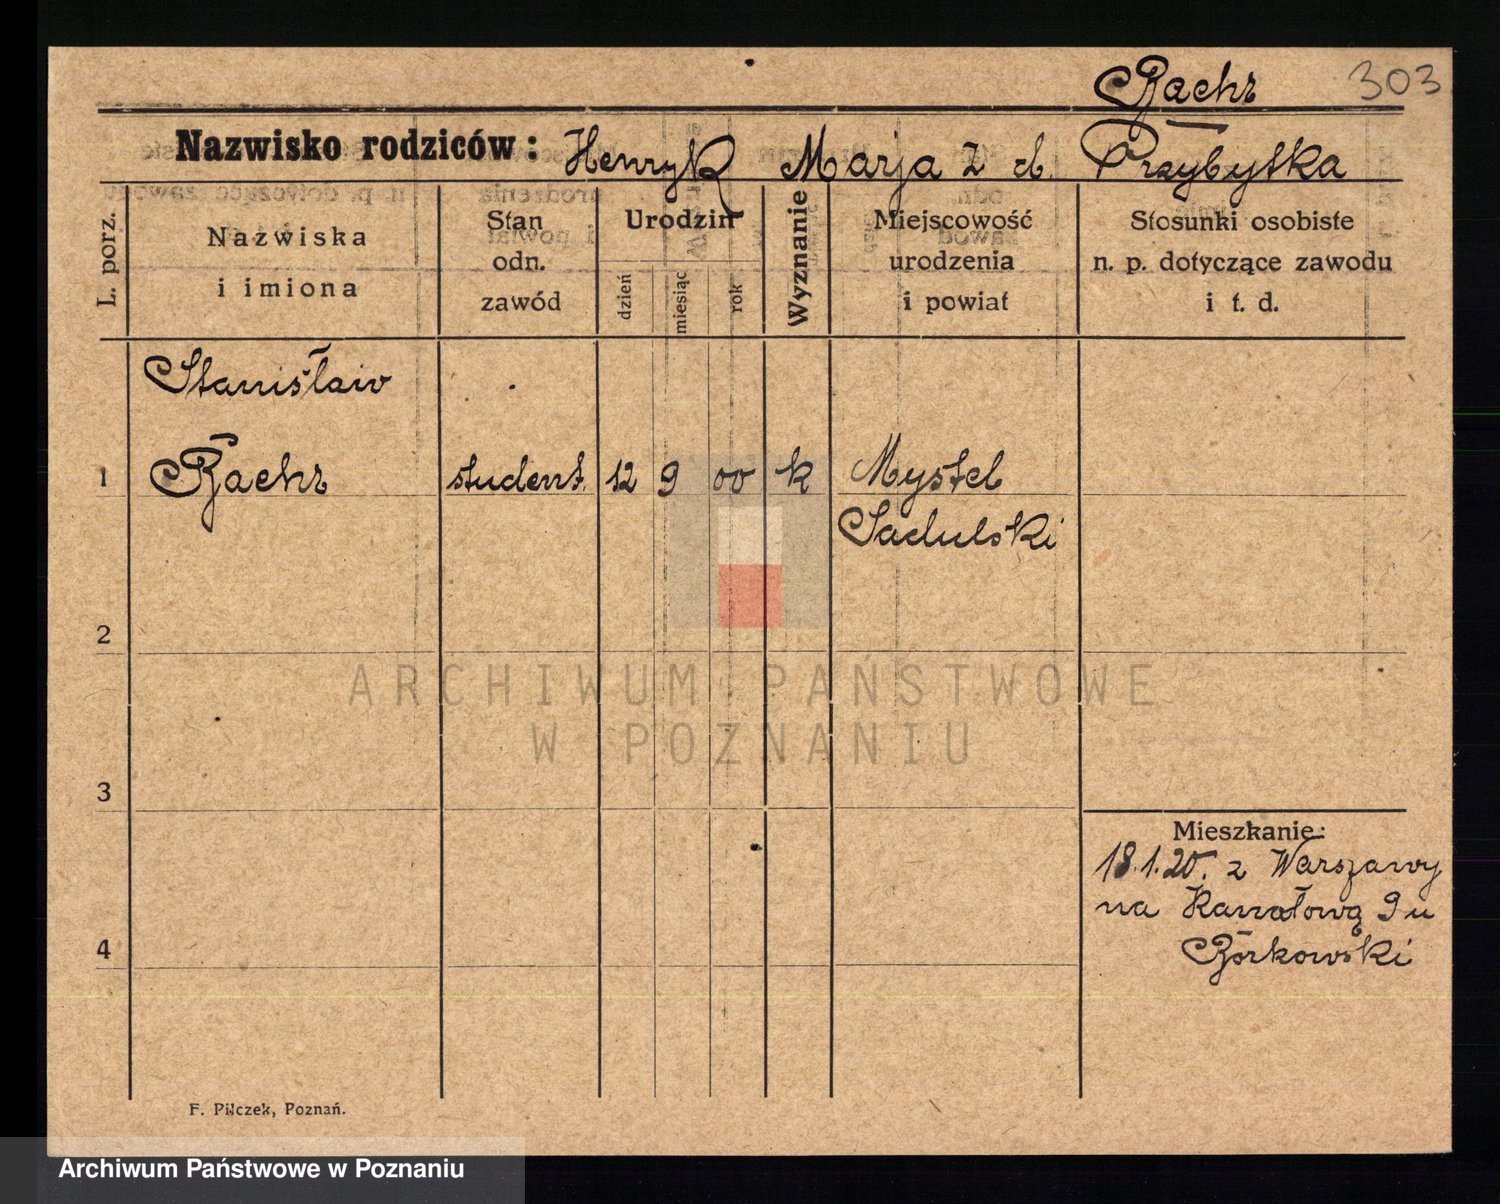 Baehr 303
Nazwisko rodziców: Henryk Marja z d. Przybytka
L. porz.
Nazwiska
i imiona
Stan
odn.
zawód
Urodzin
dzień
miesiąc
rok
Wyznanie
Miejscowość
urodzenia
i powiat
Stosunki osobiste
n. p. dotyczące zawodu
i t. d.
Stanisław
1 Baehr student 12 9 00 k
2
3
4
Mieszkanie:
18.1.20. z Warszawy
na Kanałową 9 u
F. Pilczek, Poznań.
ARCHIWUM PAŃSTWOWE
W POZNANIU
Archiwum Państwowe w Poznaniu